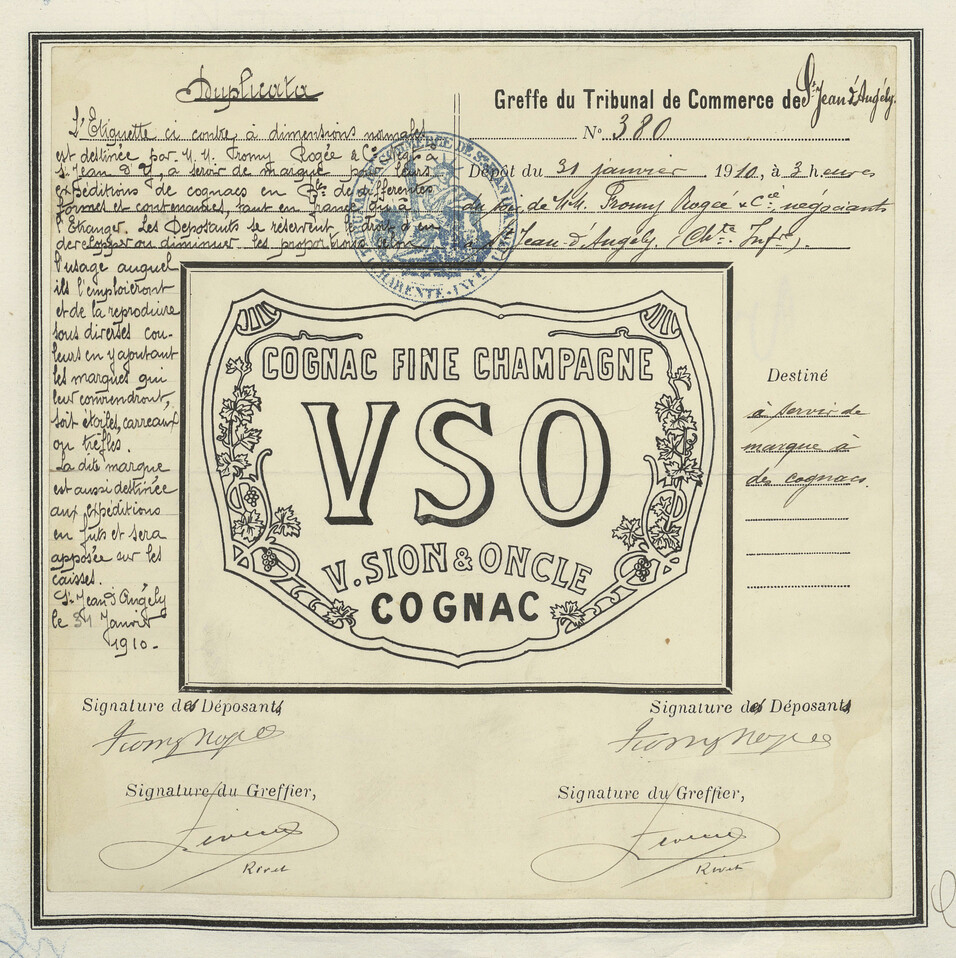 Duplicata
L'Etiquette ci contre à dimensions normales
est destinée par M. M. Fromy Rogée & Cie Neg. à
St Jean d'A, à servir de marque pour leurs
expéditions de cognacs en Btles de différentes
formes et contenances, tant en France qu'à
l'Etranger. Les Déposants se réservent le droit d'en
developper ou diminuer les proportions selon
l'usage auquel
ils l'emploieront
et de la reproduire
sous diverses cou-
leurs en y ajoutant
les marques qui
leur conviendront,
soit étoiles, carreaux
ou trèfles.
La dite marque
est aussi destinée
aux expéditions
en futs et sera
apposée sur les
caisses.
St Jean d'Angély
le 31 Janvier
1910.-
Greffe du Tribunal de Commerce de St Jean d'Angély.
No. 380
Dépôt du 31 janvier 1910, à 3 heures
du soir, de MM. Fromy Rogée & Cie négociants
à St Jean-d'Angely (Chte Infre).
TRIBUNAL DE COMMERCE DE ST JEAN D'ANGELY
CHARENTE-INFRE
COGNAC FINE CHAMPAGNE
VSO
V. SION & ONCLE
COGNAC
Destiné
à servir de
marque à
des cognacs.
Signature des Déposants
Fromy Rogée
Signature du Greffier,
Rivet
Signature des Déposants
Fromy Rogée
Signature du Greffier,
Rivet